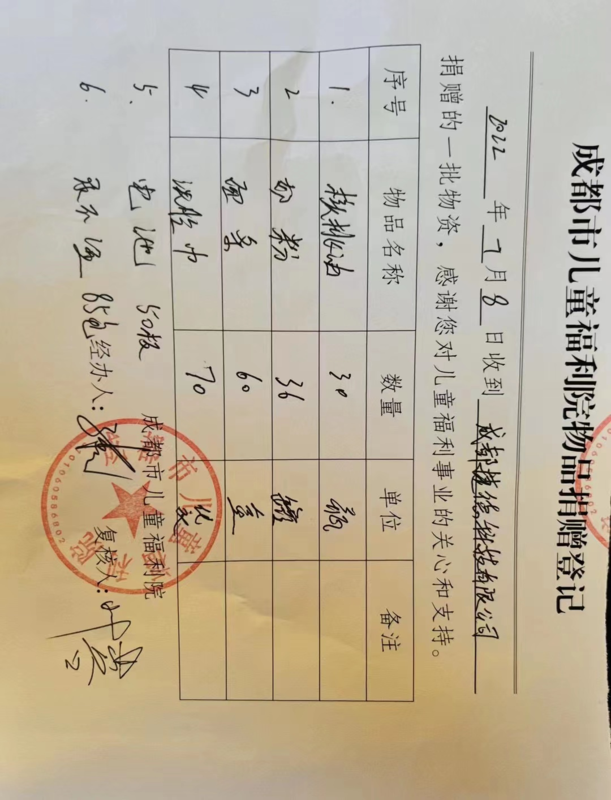 成都市儿童福利院物品捐赠登记
2022 年 7 月 8 日收到 成都捷德科技有限公司
捐赠的一批物资，感谢您对儿童福利事业的关心和支持。
序号 物品名称 数量 单位 备注
1. 核桃油 30 瓶
2 奶粉 36 罐
3 面条 60 盒
4 洗脸巾 70
5. 电池 50板
6. 尿不湿 85包
成都市儿童福利院
经办人： 复核人：